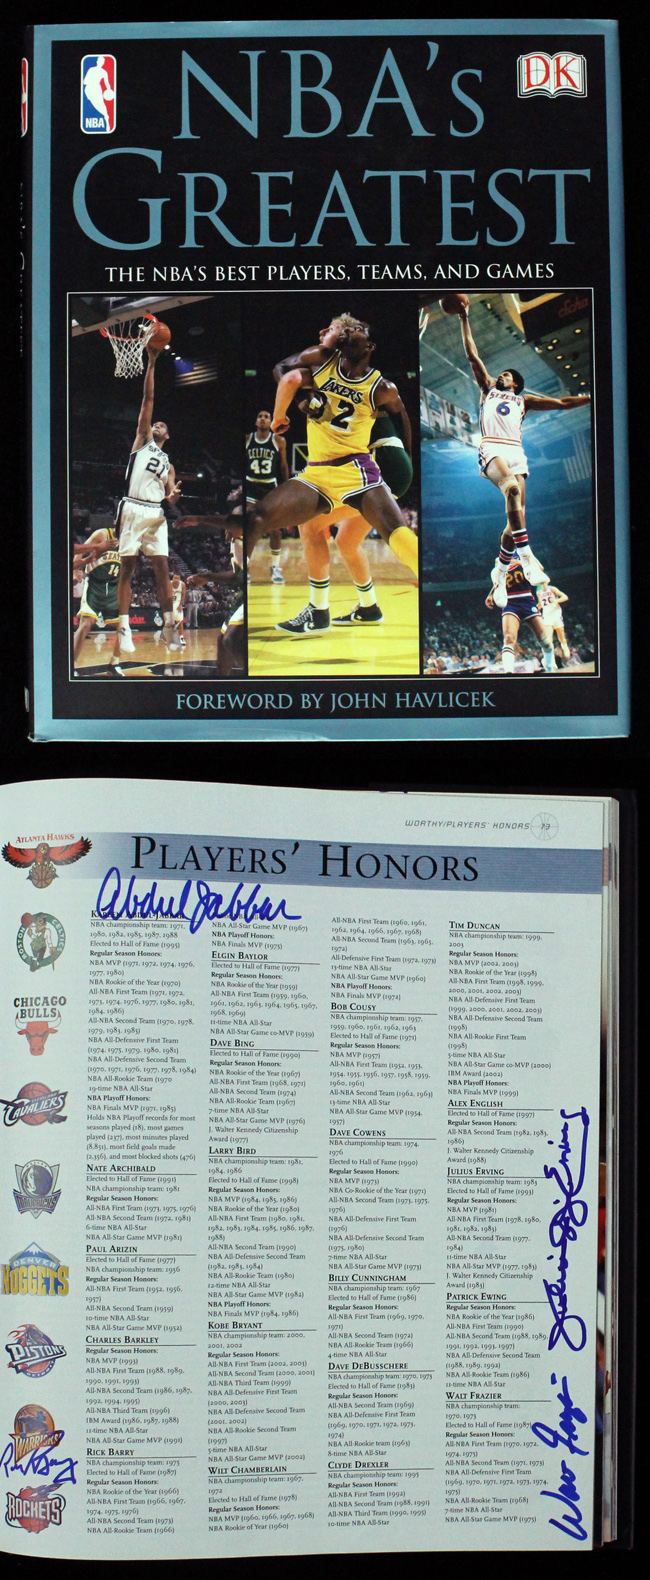 NBA's
GREATEST
DK
NBA
THE NBA'S BEST PLAYERS, TEAMS, AND GAMES
21
14
CELTICS
43
LAKERS
2
SIXERS
6
20
FOREWORD BY JOHN HAVLICEK
WORTHY/PLAYERS' HONORS 73
ATLANTA HAWKS
PLAYERS' HONORS
Abdul Jabbar
BOSTON CELTICS
CHICAGO
BULLS
CAVALIERS
MAVERICKS
DENVER
NUGGETS
PISTONS
WARRIORS
ROCKETS
KAREEM ABDUL-JABBAR
NBA championship team: 1971,
1980, 1982, 1985, 1987, 1988
Elected to Hall of Fame (1995)
Regular Season Honors:
NBA MVP (1971, 1972, 1974, 1976,
1977, 1980)
NBA Rookie of the Year (1970)
All-NBA First Team (1971, 1972,
1973, 1974, 1976, 1977, 1980, 1981,
1984, 1986)
All-NBA Second Team (1970, 1978,
1979, 1983, 1985)
NBA All-Defensive First Team
(1974, 1975, 1979, 1980, 1981)
NBA All-Defensive Second Team
(1970, 1971, 1976, 1977, 1978, 1984)
NBA All-Rookie Team (1970
19-time NBA All-Star
NBA Playoff Honors:
NBA Finals MVP (1971, 1985)
Holds NBA Playoff records for most
seasons played (18), most games
played (237), most minutes played
(8,851), most field goals made
(2,356), and most blocked shots (476)
NATE ARCHIBALD
Elected to Hall of Fame (1991)
NBA championship: 1981
Regular Season Honors:
All-NBA First Team (1973, 1975, 1976)
All-NBA Second Team (1972, 1981)
6-time NBA All-Star
NBA All-Star Game MVP (1981)
PAUL ARIZIN
Elected to Hall of Fame (1977)
NBA championship: 1956
Regular Season Honors:
All-NBA First Team (1952, 1956,
1957)
All-NBA Second Team (1959)
10-time NBA All-Star
NBA All-Star Game MVP (1952)
CHARLES BARKLEY
Regular Season Honors:
NBA MVP (1993)
All-NBA First Team (1988, 1989,
1990, 1991, 1993)
All-NBA Second Team (1986, 1987,
1992, 1994, 1995)
All-NBA Third Team (1996)
IBM Award (1986, 1987, 1988)
11-time NBA All-Star
NBA All-Star Game MVP (1991)
RICK BARRY
NBA championship team: 1975
Elected to Hall of Fame (1987)
NBA Rookie of the Year (1966)
All-NBA First Team (1966, 1967,
1974, 1975, 1976)
All-NBA Second Team (1973)
NBA All-Rookie Team (1966)
NBA All-Star Game MVP (1967)
NBA Playoff Honors:
NBA Finals MVP (1975)
ELGIN BAYLOR
Elected to Hall of Fame (1977)
Regular Season Honors:
NBA Rookie of the Year (1959)
All-NBA First Team (1959, 1960,
1961, 1962, 1963, 1964, 1965, 1967,
1968, 1969)
11-time NBA All-Star
NBA All-Star Game co-MVP (1959)
DAVE BING
Elected to Hall of Fame (1990)
Regular Season Honors:
NBA Rookie of the Year (1967)
All-NBA First Team (1968, 1971)
All-NBA Second Team (1974)
NBA All-Rookie Team (1967)
7-time NBA All-Star
NBA All-Star Game MVP (1976)
J. Walter Kennedy Citizenship
Award (1977)
LARRY BIRD
NBA championship team: 1981,
1984, 1986
Elected to Hall of Fame (1998)
Regular Season Honors:
NBA MVP (1984, 1985, 1986)
NBA Rookie of the Year (1980)
All-NBA First Team (1980, 1981,
1982, 1983, 1984, 1985, 1986, 1987,
1988)
All-NBA Second Team (1990)
NBA All-Defensive Second Team
(1982, 1983, 1984)
NBA All-Rookie Team (1980)
12-time NBA All-Star
NBA All-Star Game MVP (1982)
NBA Playoff Honors:
NBA Finals MVP (1984, 1986)
KOBE BRYANT
NBA championship team: 2000,
2001, 2002
Regular Season Honors:
All-NBA First Team (2002, 2003)
All-NBA Second Team (2000, 2001)
All-NBA Third Team (1999)
NBA All-Defensive First Team
(2000, 2003)
NBA All-Defensive Second Team
(2001, 2002)
NBA All-Rookie Second Team
(1997)
5-time NBA All-Star
NBA All-Star Game MVP (2002)
WILT CHAMBERLAIN
NBA championship team: 1967,
1972
Elected to Hall of Fame (1978)
Regular Season Honors:
NBA MVP (1960, 1966, 1967, 1968)
NBA Rookie of Year (1960)
All-NBA First Team (1960, 1961,
1962, 1964, 1966, 1967, 1968)
All-NBA Second Team (1963, 1965,
1972)
All-Defensive First Team (1972, 1973)
13-time NBA All-Star
NBA All-Star Game MVP (1960)
NBA Playoff Honors:
NBA Finals MVP (1972)
BOB COUSY
NBA championship team: 1957,
1959, 1960, 1961, 1962, 1963
Elected to Hall of Fame (1971)
Regular Season Honors:
NBA MVP (1957)
All-NBA First Team (1952, 1953,
1954, 1955, 1956, 1957, 1958, 1959,
1960, 1961)
All-NBA Second Team (1962, 1963)
13-time NBA All-Star
NBA All-Star Game MVP (1954,
1957)
DAVE COWENS
NBA championship team: 1974,
1976
Elected to Hall of Fame (1990)
Regular Season Honors:
NBA MVP (1973)
NBA Co-Rookie of the Year (1971)
All-NBA Second Team (1973, 1975,
1976)
NBA All-Defensive First Team
(1976)
NBA All-Defensive Second Team
(1975, 1980)
7-time NBA All-Star
NBA All-Star Game MVP (1973)
BILLY CUNNINGHAM
NBA championship team: 1967
Elected to Hall of Fame (1986)
Regular Season Honors:
All-NBA First Team (1969, 1970,
1971)
All-NBA Second Team (1972)
NBA All-Rookie Team (1966)
4-time NBA All-Star
DAVE DEBUSSCHERE
NBA championship team: 1970, 1973
Elected to Hall of Fame (1983)
Regular Season Honors:
All-NBA Second Team (1969)
NBA All-Defensive First Team
(1969, 1970, 1971, 1972, 1973,
1974)
NBA All-Rookie Team (1963)
8-time NBA All-Star
CLYDE DREXLER
NBA championship team: 1995
Regular Season Honors:
All-NBA First Team (1992)
All-NBA Second Team (1988, 1991)
All-NBA Third Team (1990, 1995)
10-time NBA All-Star
TIM DUNCAN
NBA championship team: 1999,
2003
Regular Season Honors:
NBA MVP (2002, 2003)
NBA Rookie of the Year (1998)
All-NBA First Team (1998, 1999,
2000, 2001, 2002, 2003)
NBA All-Defensive First Team
(1999, 2000, 2001, 2002, 2003)
NBA All-Defensive Second Team
(1998)
NBA All-Rookie First Team
(1998)
5-time NBA All-Star
NBA All-Star Game co-MVP (2000)
IBM Award (2002)
NBA Playoff Honors:
NBA Finals MVP (1999)
ALEX ENGLISH
Elected to Hall of Fame (1997)
Regular Season Honors:
All-NBA Second Team (1982, 1983,
1986)
J. Walter Kennedy Citizenship
Award (1988)
JULIUS ERVING
NBA championship team: 1983
Elected to Hall of Fame (1993)
Regular Season Honors:
NBA MVP (1981)
All-NBA First Team (1978, 1980,
1981, 1982, 1983)
All-NBA Second Team (1977,
1984)
11-time NBA All-Star
NBA All-Star MVP (1977, 1983)
J. Walter Kennedy Citizenship
Award (1983)
PATRICK EWING
Regular Season Honors:
NBA Rookie of the Year (1986)
All-NBA First Team (1990)
All-NBA Second Team (1988, 1989,
1991, 1992, 1993, 1997)
NBA All-Defensive Second Team
(1988, 1989, 1992)
NBA All-Rookie Team (1986)
11-time NBA All-Star
WALT FRAZIER
NBA championship team:
1970, 1973
Elected to Hall of Fame (1987)
Regular Season Honors:
All-NBA First Team (1970, 1972,
1974, 1975)
All-NBA Second Team (1971, 1973)
NBA All-Defensive First Team
(1969, 1970, 1971, 1972, 1973, 1974,
1975)
NBA All-Rookie Team (1968)
7-time NBA All-Star
NBA All-Star Game MVP (1975)
Rick Barry
Julius Dr J Erving
Walt Frazier